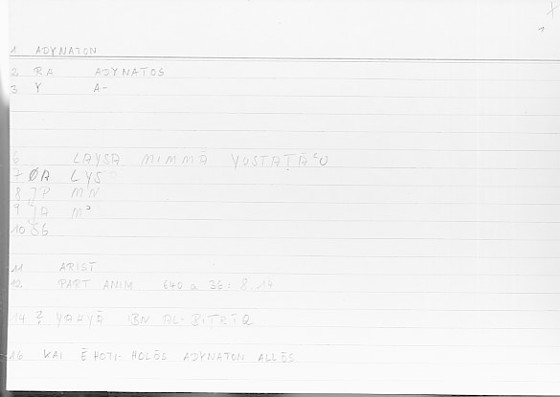 1 ADYNATON
2 RA ADYNATOS
3 Y A-
6 LAYSA MIMMĀ YUSTAṬĀʿU
7 ØA LYS
8 JP MN
9 JA M
10 56
11 ARIST
12 PART ANIM 640 a 36: 8.14
14 2 YAḤYĀ IBN AL-BIṬRĪQ
16 KAI Ē HOTI HOLŌS ADYNATON ALLŌS